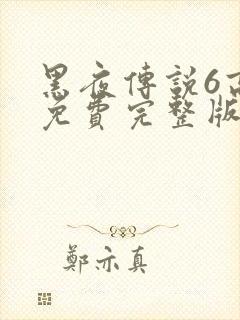 黑夜傳説6高
免費完整版
鄭亦真